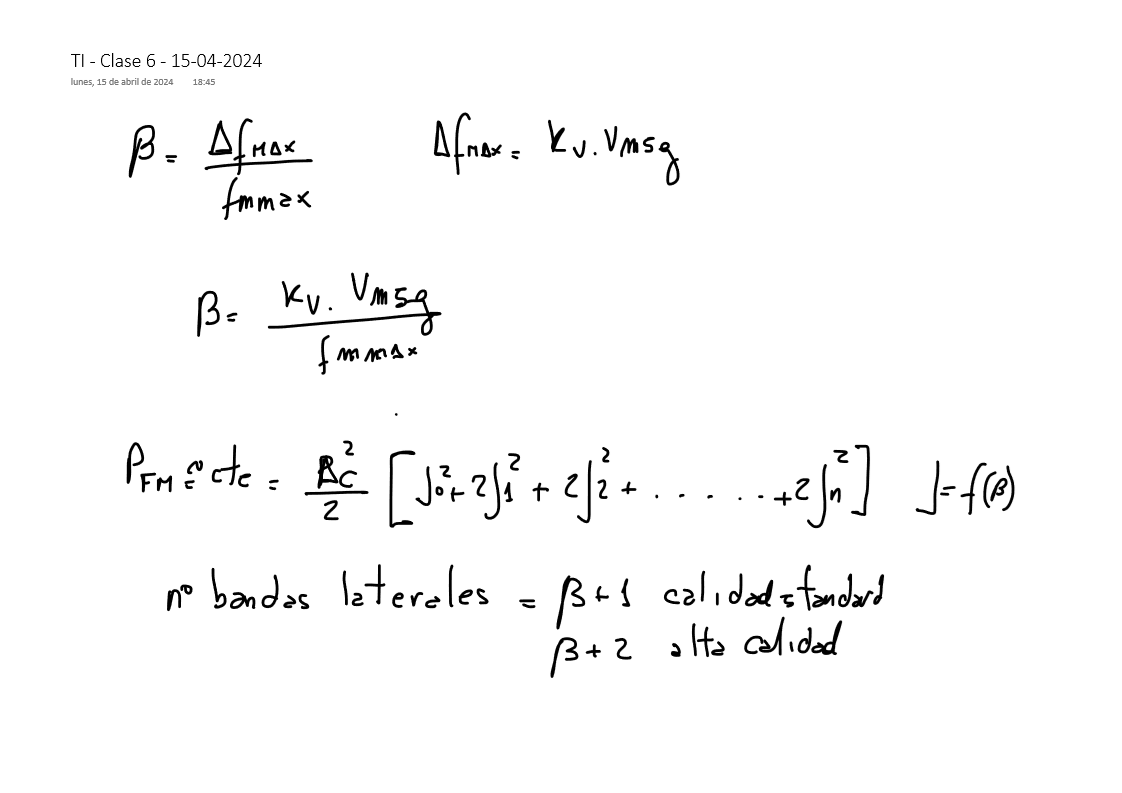 TI - Clase 6 - 15-04-2024
lunes, 15 de abril de 2024 18:45
β = Δf MAX / f m max Δf MAX = Kv . Vmsg
β = Kv . Vmsg / f m max
P FM ≅ cte = Ac² / 2 [ J0² + 2J1² + 2J2² + . . . . . . + 2Jn² ] J = f(β)
nº bandas laterales = β + 1 calidad standard
β + 2 alta calidad